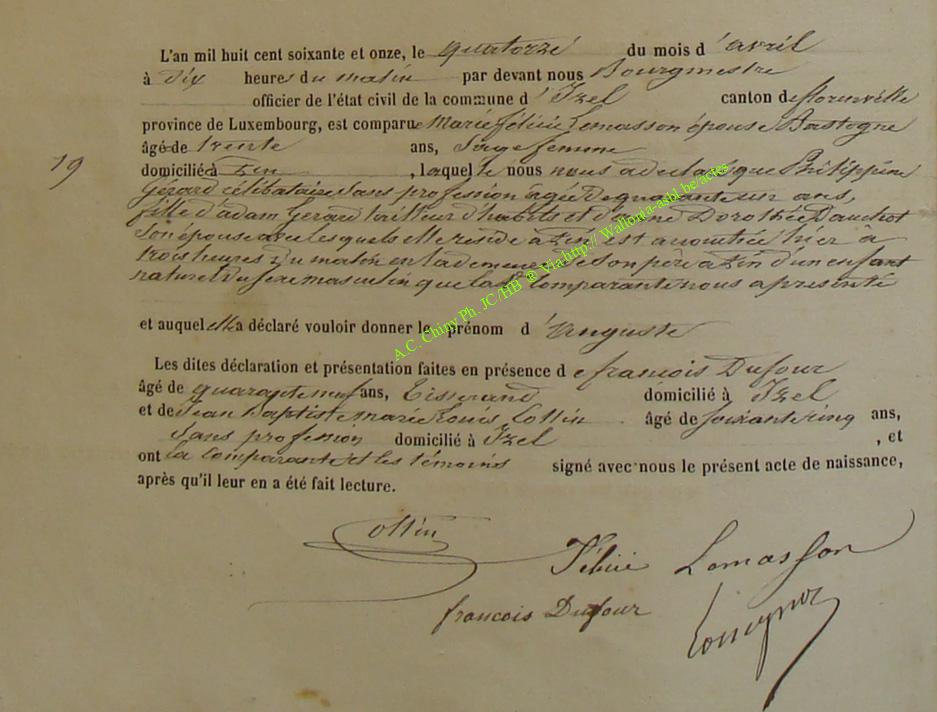 L'an mil huit cent soixante et onze, le quatorze du mois d'avril
à dix heures du matin par devant nous Bourgmestre
officier de l'état civil de la commune d'Izel canton de florenville
province de Luxembourg, est comparue Marie félicie Lemasson épouse Bastogne
19
âgé de trente ans, Sage femme
domicilié à Pin, laquelle nous a déclaré que Philippine
Gérard célibataire sans profession âgée de quarante un ans,
fille d'adam Gerard tailleur d'habits et d'anne Dorothée Dauchot
son épouse avec lesquels elle reside à Pin, est accouchée hier à
trois heures du matin en la demeure de son père à Pin d'un enfant
naturel du sexe masculin que la comparante nous a présenté
et auquel elle a déclaré vouloir donner le prénom d'auguste
Les dites déclaration et présentation faites en présence de francois Dufour
âgé de quarante neuf ans, Tisserand domicilié à Izel
et de Jean Baptiste marie Louis Collin âgé de soixante cinq ans,
Sans profession domicilié à Izel, et
ont la comparante et les témoins signé avec nous le présent acte de naissance,
après qu'il leur en a été fait lecture.
Collin
Félicie Lemasson
francois Dufour
A.C. Chiny Ph. JC./HB ® Via http:// Wallonia-asbl.be/actes